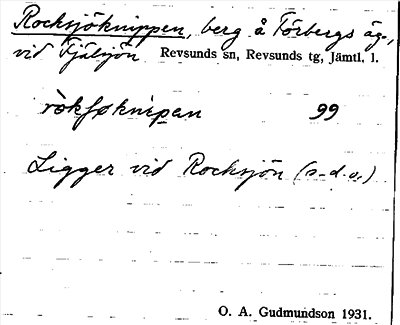 Rocksjöknippen, berg å Förbergs äg.,
vid Fjälsjön Revsunds sn, Revsunds tg, Jämtl. l.
ròkʃøknipan 99
Ligger vid Rocksjön (s.d.o.)
O. A. Gudmundson 1931.